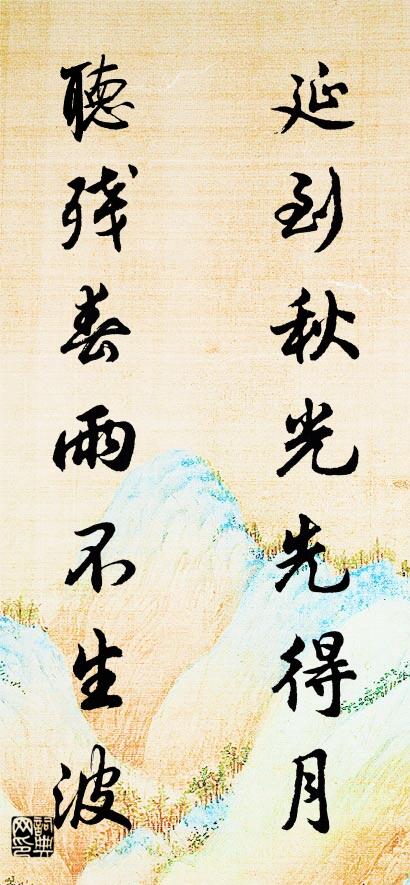 延到秋光先得月
聽残春雨不生波
詞典网印